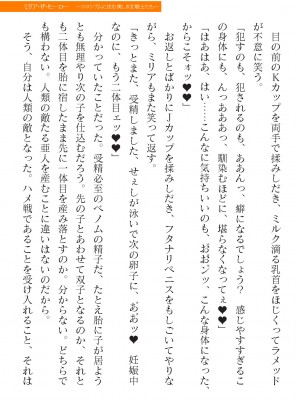 目の前のKカップを両手で揉みしだき、ミルク滴る乳首をほじくってラメッド
が不意に笑う。
「犯すのも、犯されるのも、ああんっ、癖になるでしょう？　感じやすすぎるこ
の身体にも、んっあああっ、馴染むほどに、堪らなくなってぇ♥」
「はぁはあ、はい……こんなに気持ちいいのも、おおンッ、こんな身体になった
からこそォッ♥♥」
お返しとばかりにJカップを揉みしだき、フタナリペニスをもしごいてやりな
がら、リリアもまた笑って返す。
「きっとまた、受精しました、せぇしが泳いで次の卵子に、あおッ♥　妊娠中
なのに、もう二体目ェッ♥♥」
分かっていたことだった。受精必至のベノムの精子だ、たとえ胎に子が居よう
とも無理やり次の子を仕込むだろう。先の子とあわせて双子となるのか、それと
も二体目を胎に宿したまま先に一体目を産み落とすのか。分からない。どちらで
も構わない。人類の敵たる亜人を産むことに違いはないのだから。
そう、自分は人類の敵となった。ハメ戦であることを受け入れること、それは